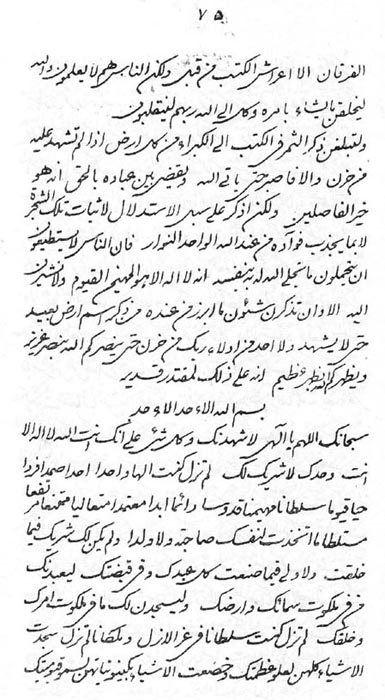 ۷۵
الفرقان الا اعراش الكتب من قبل ولكن الناس هم لا يعلمون والله
ليخلقن ما يشاء بامره وكل الى الله ربهم لينقلبون
ولتبلغن ذكر الثمر فى الكتب الى الكبراء من كل ارض اذا لم تشهد عليه
من حزن والا فاصبر حتى ياتى الله ويقضى بين عباده بالحق انه هو
خير الفاصلين ولكن اذكر على سبل الاستدلال لاثبات تلك الشجرة
لا بما يجذب فؤاده من عند الله الواحد النوار فان الناس لا يستطيعون
ان يتحملون ما تجلى الله له بنفسه انه لا اله الا هو المهيمن القيوم ولا تشيرن
اليه الا وان تذكرن شئون ما ابرز من عنده من ذكر اسم ارض بعيد
حتى لا يشهد ولا احد من اولاء ربك من حزن حتى ينصركم الله بنصر عزيز
ويظهركم الله بظهر عظيم انه على ذلك لمقتدر قدير
بسم الله الاوحد الاوحد
سبحانك اللهم يا الهى لاشهدنك وكل شئ على انك انت الله لا اله الا
انت وحدك لا شريك لك لم تزل كنت الها واحدا احدا صمدا فردا
حيا قيوما سلطانا مهيمنا قدوسا دائما ابدا معتمدا متعاليا ممتنعا مرتفعا
متسلطا ما اتخذت لنفسك صاحبة ولا ولدا ولم يكن لك شريك فيما
خلقت ولا ولى فيما صنعت كل عبدك وفى قبضتك ليعبدنك
من فى ملكوت سمائك وارضك وليسجدن لك ما فى ملكوت امرك
وخلقك لم تزل كنت سلطانا فى عز الازل ومليكا لم تزل سجدت
الاشياء كلهن لعلو عظمتك وخضعت الاشياء بكينونياتهن لسمو قيوميتك